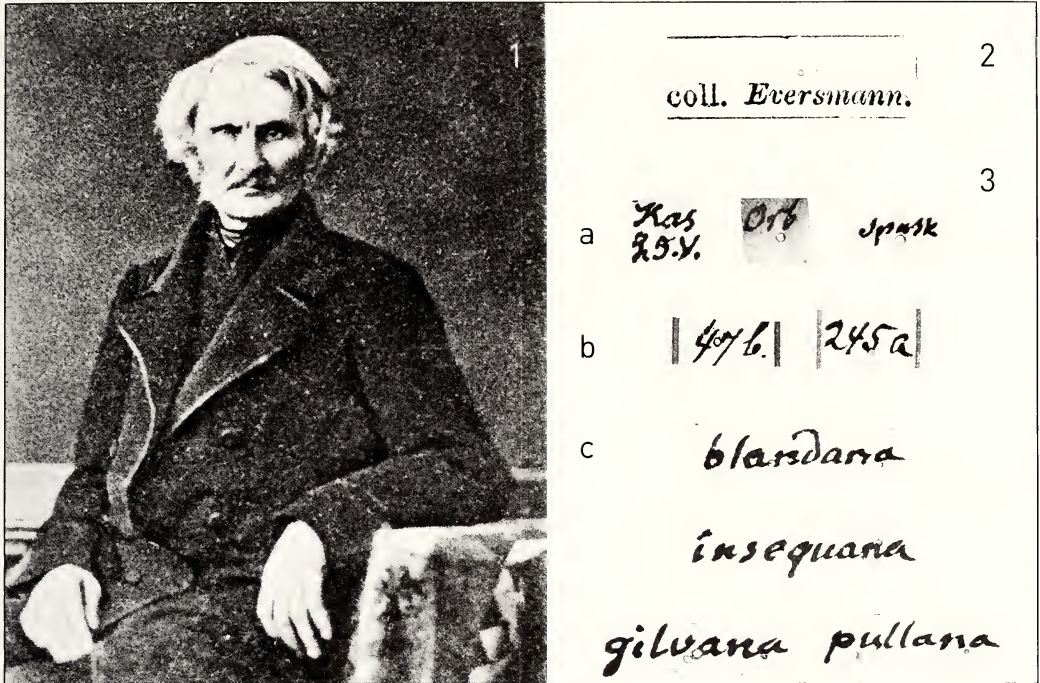 1
2
coll. Eversmann.
3
a Kas Orb Spask
25.V.
b 47b. 245a
c blandana
insequana
gilvana pullana